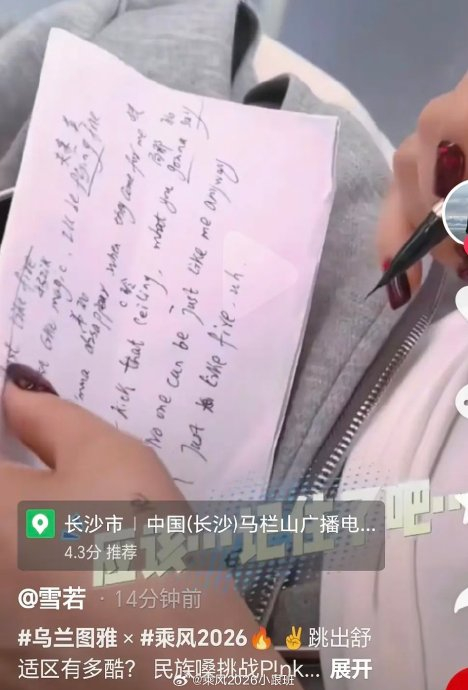 Just like fire
like magic, I'll be flying free
gonna disappear when they come for me
kick that ceiling, what you gonna say
No one can be just like me anyway
Just like fire, uh.
应该…记住了吧…
长沙市 | 中国(长沙)马栏山广播电...
4.3分 推荐
@雪若 · 14分钟前
#乌兰图雅 × #乘风2026🔥 ✌跳出舒
适区有多酷? 民族嗓挑战P!nk... 展开
@乘风2026小跟班